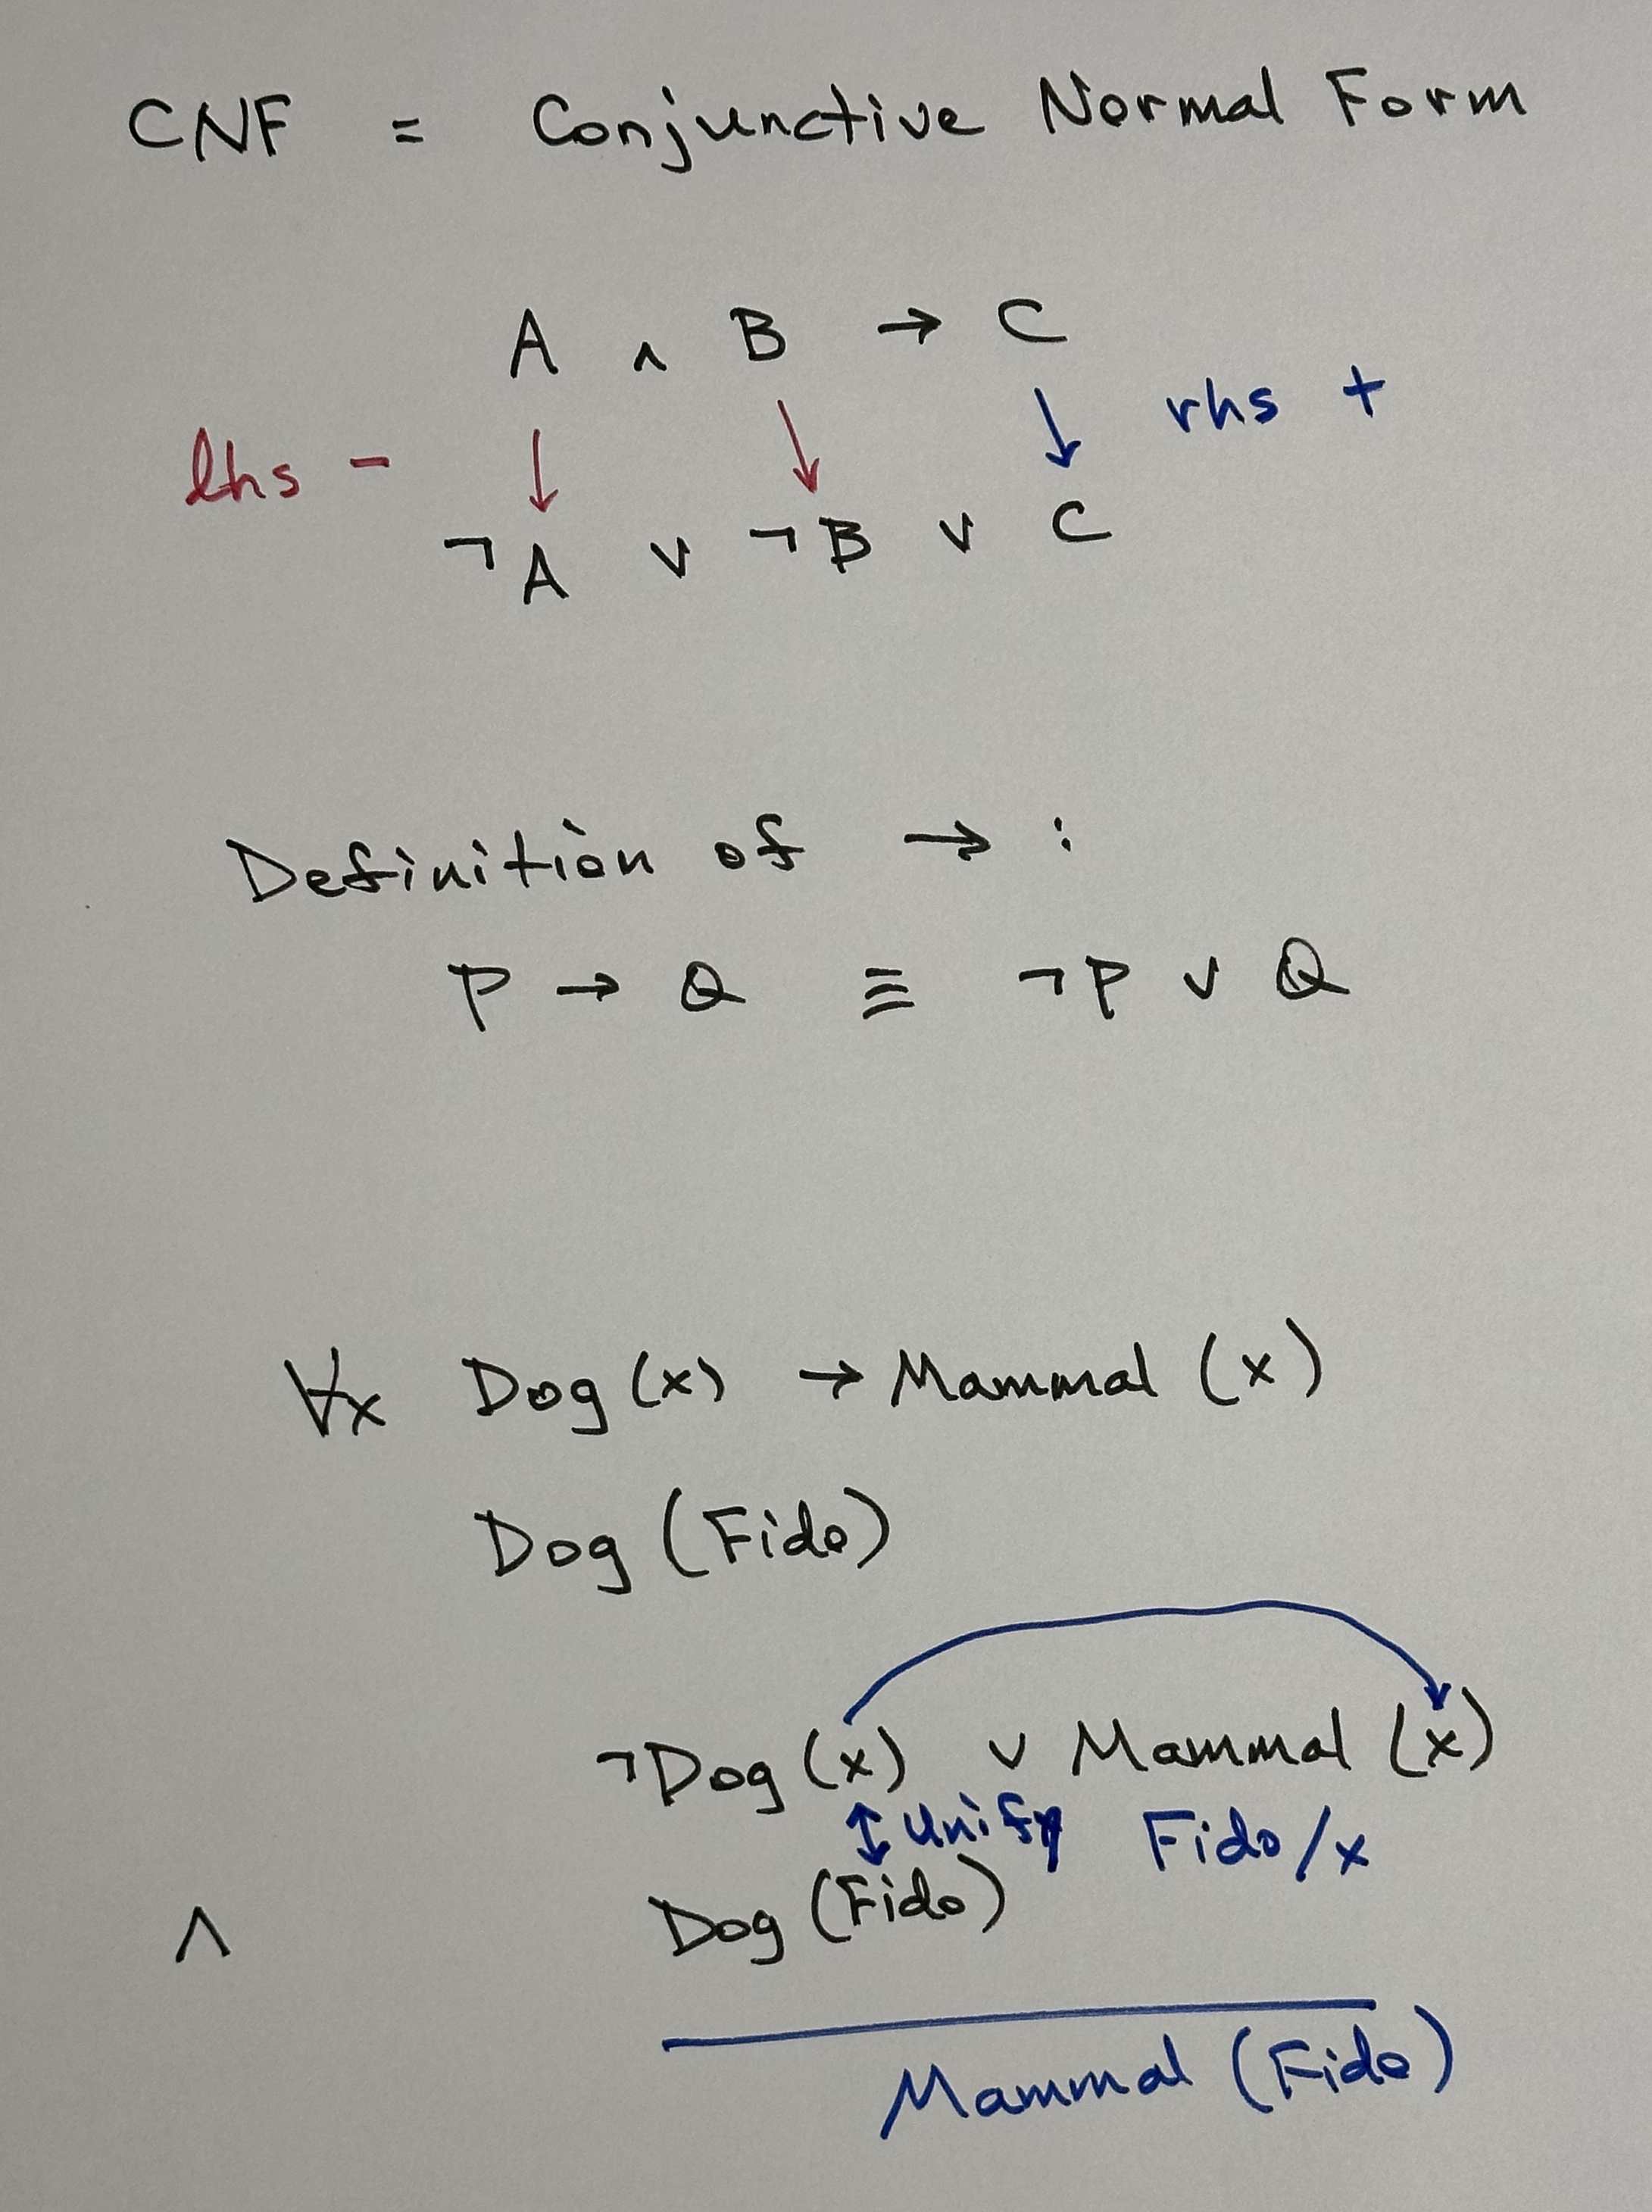 CNF = Conjunctive Normal Form
A ∧ B → C
lhs - ↓ ↓ ↓ rhs +
¬A ∨ ¬B ∨ C
Definition of → :
P → Q ≡ ¬P ∨ Q
∀x Dog(x) → Mammal(x)
Dog(Fido)
¬Dog(x) ∨ Mammal(x)
↕ unify Fido/x
∧ Dog(Fido)
Mammal(Fido)